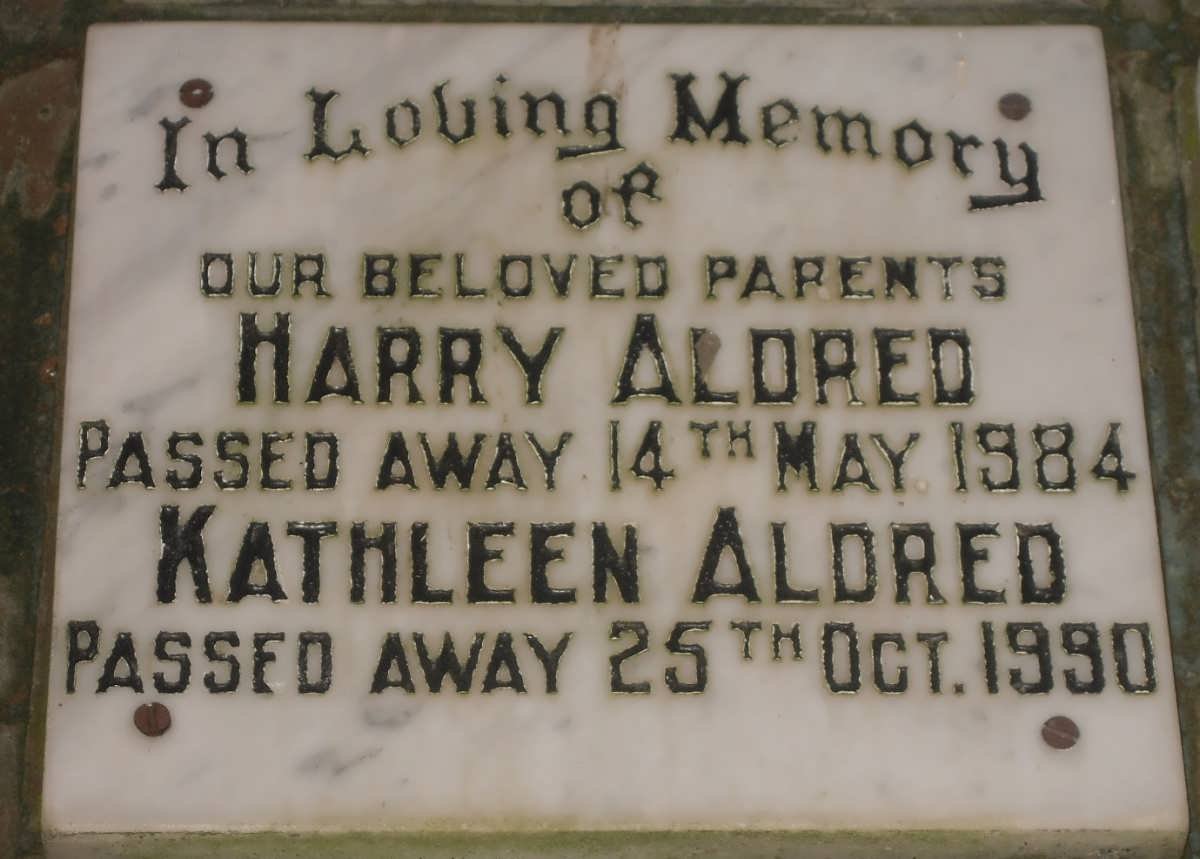 In Loving Memory
of
OUR BELOVED PARENTS
HARRY ALDRED
PASSED AWAY 14TH MAY 1984
KATHLEEN ALDRED
PASSED AWAY 25TH OCT. 1990